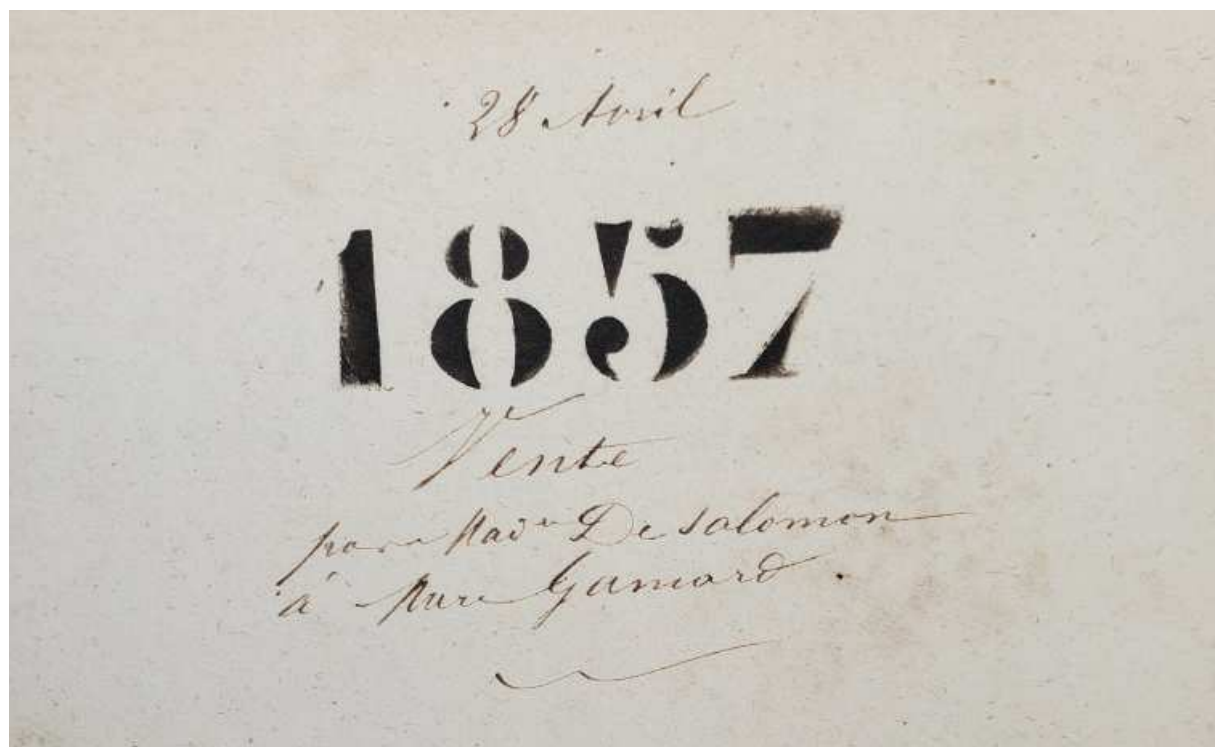 28 Avril
1857
Vente
par Mad^e De Salomon
à Gamard